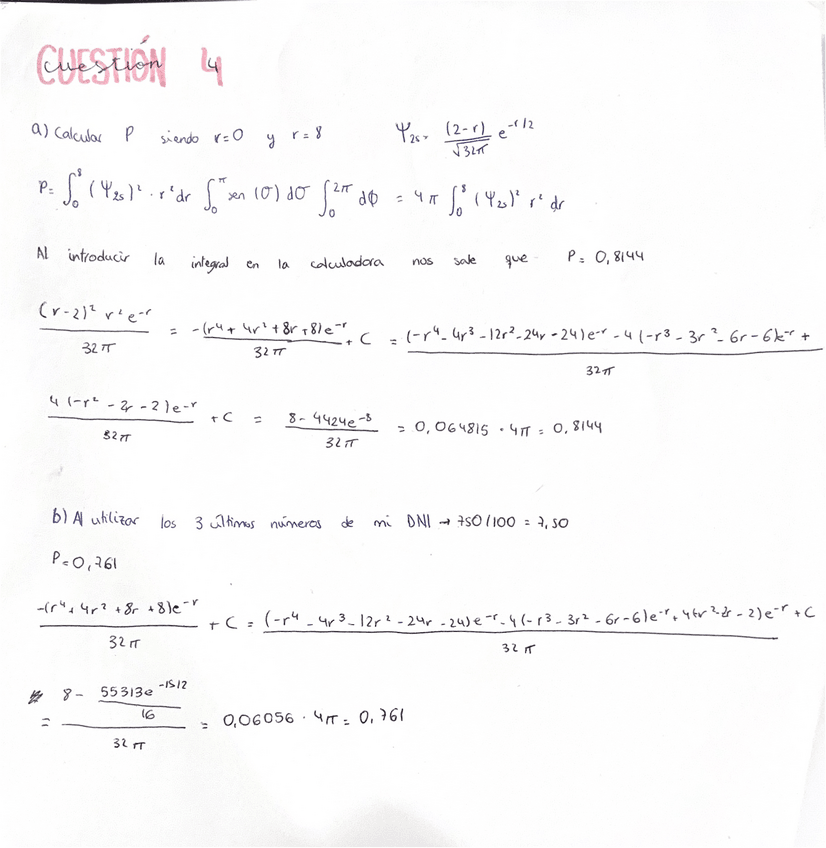 CUESTIÓN 4
a) Calcular P siendo r=0 y r=8 Ψ2s = (2-r)/√32π e^-r/2
P= ∫₀⁸ (Ψ2s)² · r² dr ∫₀^π sen (σ) dσ ∫₀^2π dϕ = 4π ∫₀⁸ (Ψ2s)² r² dr
Al introducir la integral en la calculadora nos sale que P= 0,8144
(r-2)² r² e^-r / 32π = -(r⁴ + 4r² + 8r + 8)e^-r / 32π + C = (-r⁴ - 4r³ - 12r² - 24r - 24)e^-r - 4(-r³ - 3r² - 6r - 6)e^-r + / 32π
4(-r² - 2r - 2)e^-r / 32π + C = 8 - 4424e^-8 / 32π = 0,064815 · 4π = 0,8144
b) Al utilizar los 3 últimos números de mi DNI → 750/100 = 7,50
P=0,761
-(r⁴ + 4r² + 8r + 8)e^-r / 32π + C = (-r⁴ - 4r³ - 12r² - 24r - 24)e^-r - 4(-r³ - 3r² - 6r - 6)e^-r + 4(-r² - 2r - 2)e^-r + C / 32π
= 8 - 55313e^-15/2 / 16 / 32π = 0,06056 · 4π = 0,761